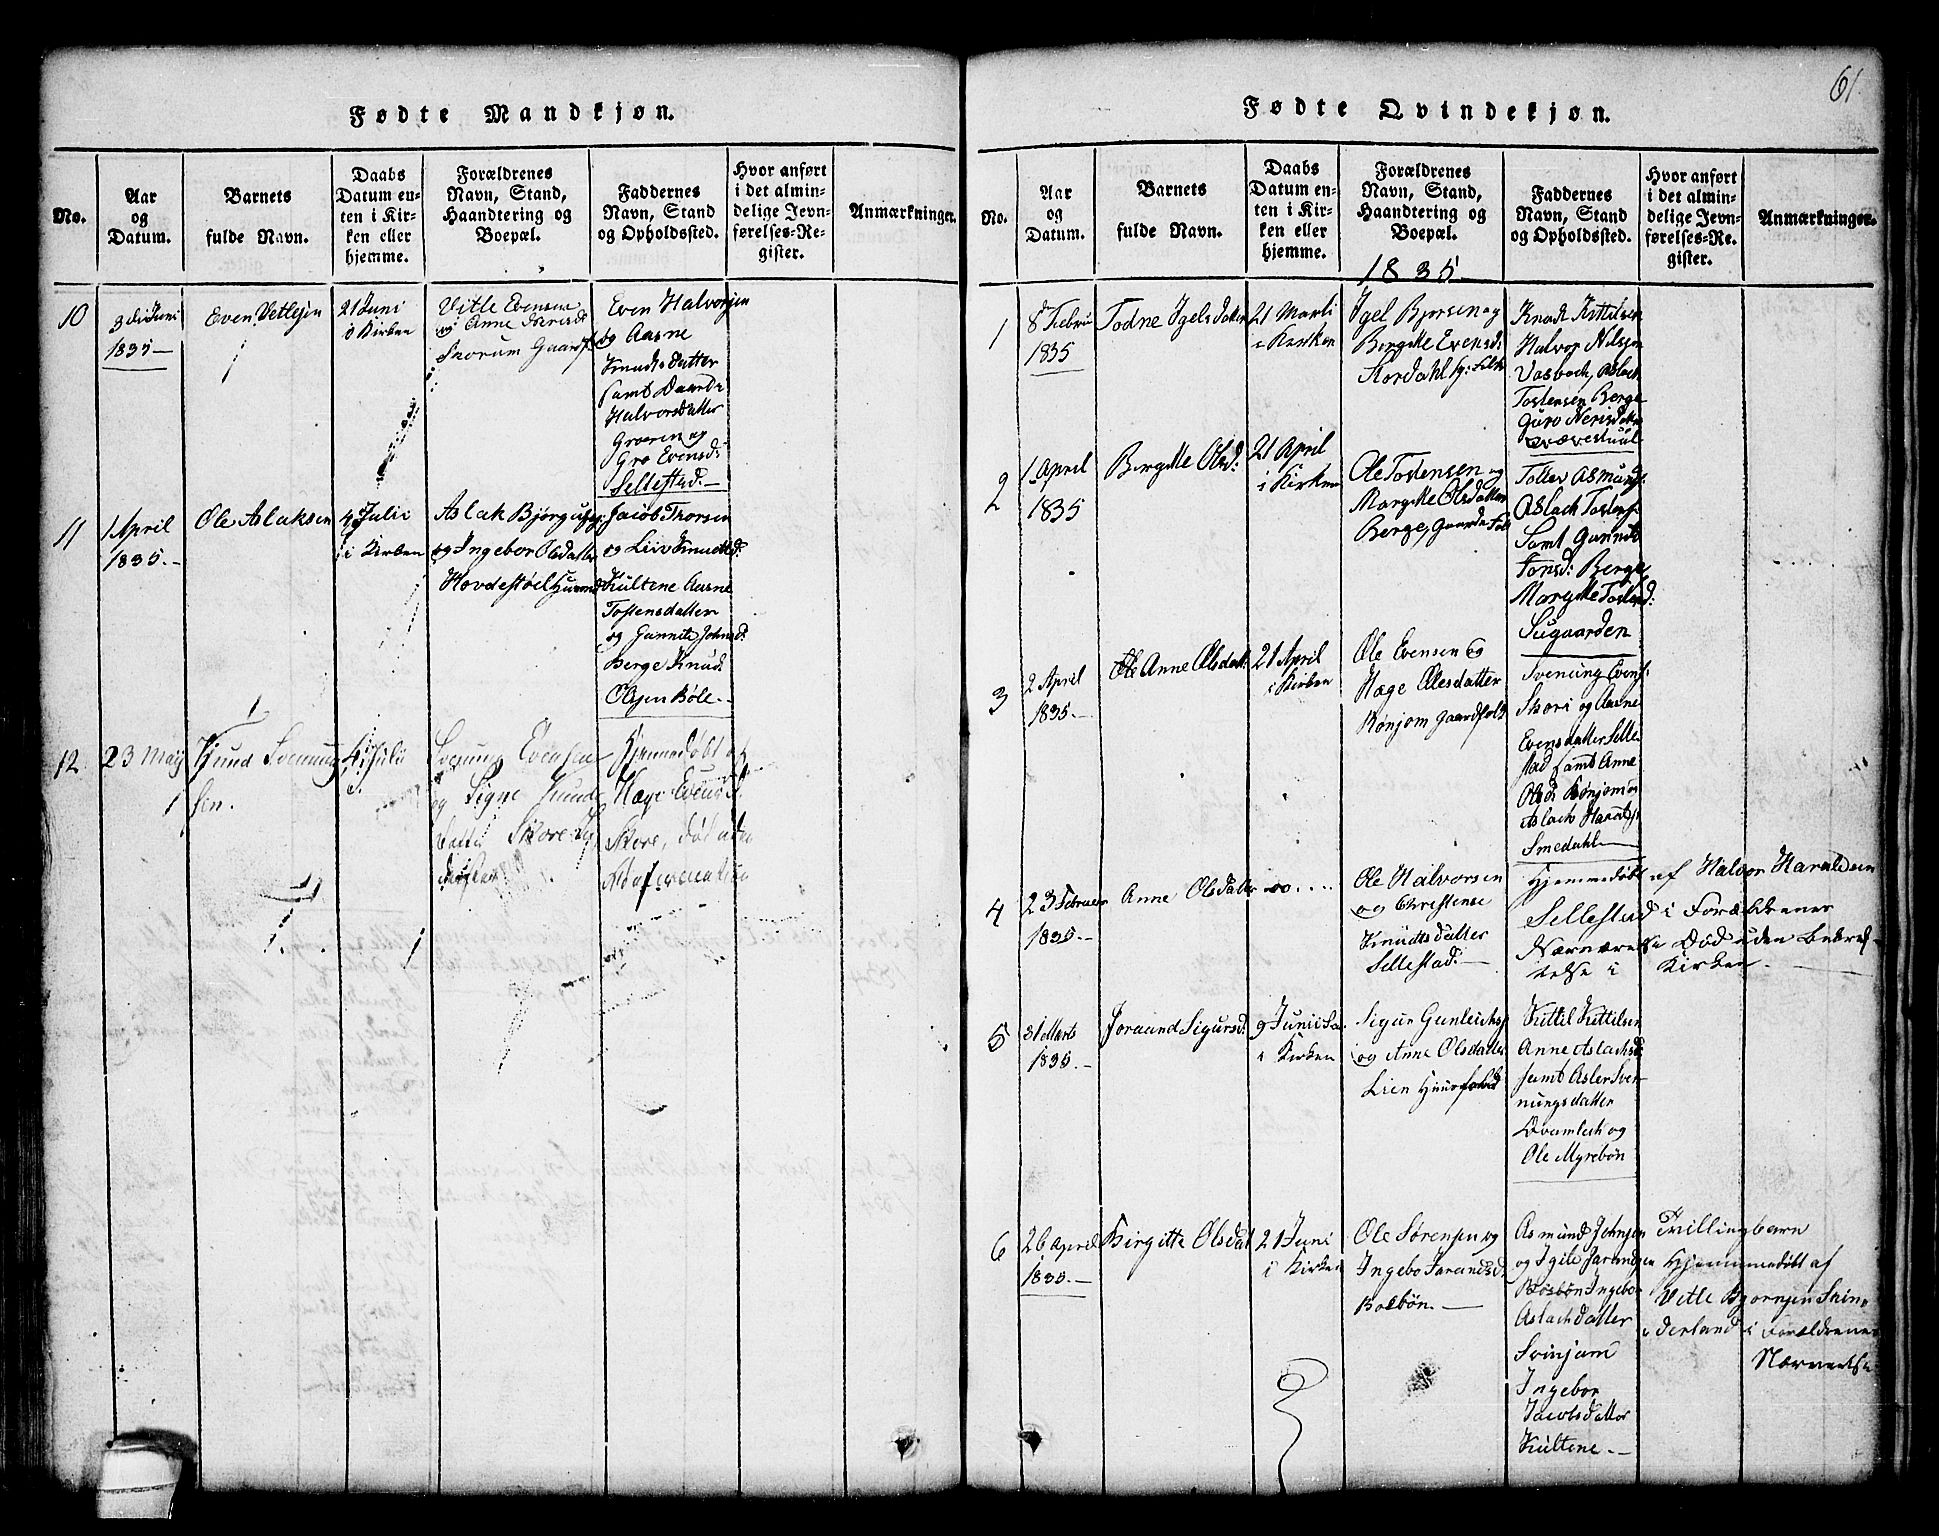 61.
Fødte Mandkjøn.
No.
Aar
og
Datum.
Barnets
fulde Navn.
Daabs
Datum en-
ten i Kir-
ken eller
hjemme.
Forældrenes
Navn, Stand,
Haandtering og
Boepæl.
Faddernes
Navn, Stand
og Opholdssted.
Hvor anført
i det almin-
delige Jevn-
førelses-Re-
gister.
Anmærkninger.
10
3die Juni
1835 —
Even Vetlesen
21 Juni
i Kirken
Vitle Evensen
og Anne
Gaard
Even Halvorsen
og Aasne
Knudsdatter
samt
Halvorsdatter
Groven og
Gro Evensd:
Sellestad. —
11
1 April
1835. —
Ole Aslaksen
4 Julii
i Kirken
Aslak
og Ingebor Olsdatter
Hovdestøel
Jacob Thorsen
og Liiv Knudsd:
Kultene Aasne
Tostensdatter
og Gunnild Johnsd:
Berge Knud
Olsen Bøle. —
12.
23 May
Knud Svenung
sen.
4 Julii
Svenung Evensen
og Signe Knuds
datter Skore
Hjemmedøbt af
Hæge Evensd:
Skore, død uden
Fødte Qvindekjøn.
No.
Aar
og
Datum.
Barnets
fulde Navn.
Daabs
Datum en-
ten i Kir-
ken eller
hjemme.
Forældrenes
Navn, Stand,
Haandtering og
Boepæl.
Faddernes
Navn, Stand
og Opholdssted.
Hvor anført
i det almin-
delige Jevn-
førelses-Re-
gister.
Anmærkninger.
1835
1
8 Febru
1835
Todne Igelsdatter
21 Marti
i Kirken
Igel Bjorsen og
Bergitte Evensd:
Stordahl
Knud Kittilsen
Halvor Nilsen
Vasbock, Aslach
Tostensen Berge
Guro Nerisdatter
2
1 April
1835
Bergitte Olsd:
21 April
i Kirken
Ole Tostensen og
Margitte Olsdatter
Berge, Gaard
Tollev Asmunds:
Aslach Tostens:
Samt Gunnild
Tonsd: Berge
Margitte Tostensd:
Sugaarden
3
2 April
1835. —
Anne Olsdatt:
21 April
i Kirken
Ole Evensen og
Hæge Olesdatter
Bønjom Gaardfolk
Svenung Evens:
Skori og Aasne
Evensdatter Selle-
stad samt Anne
Olsd: Bønjom og
Aslach Haralds:
Smedahl —
4
23 Februar
1835. —
Anne Olsdatter
Ole Halvorsen
og Christense
Knudtsdatter
Sellestad. —
Hjemmedøbt af Halvor Haraldsen
Sellestad i Forældrenes
Nærværelse Død uden Bekræf-
telse i Kirken
5
31 Marts
1835. —
Joraand Sigursd:
9 Junii
i Kirken
Sigur Gunleichs:
og Anne Olsdatter
Lien Huusfolk
Kittil Kittilsen
Anne Aslachsd:
samt Aslev Sven-
nungsdatter
og
Ole Myrebøn
6
26 April
1835. —
Birgitte Olsdat
21 Juni
i Kirken
Ole Sørensen og
Ingebo Jarandsd.
Bosbøn. —
Asmund Johnsen
og Igile Jarandsen
Bosbøn Ingebor
Aslachdatter
Svinjom
Ingebor
Jacobsdatter
Kultene. —
Tvillingbarn
Hjemmedøbt af
Vetle Bjornsen Skin-
derland i Forældrenes
Nærværelse